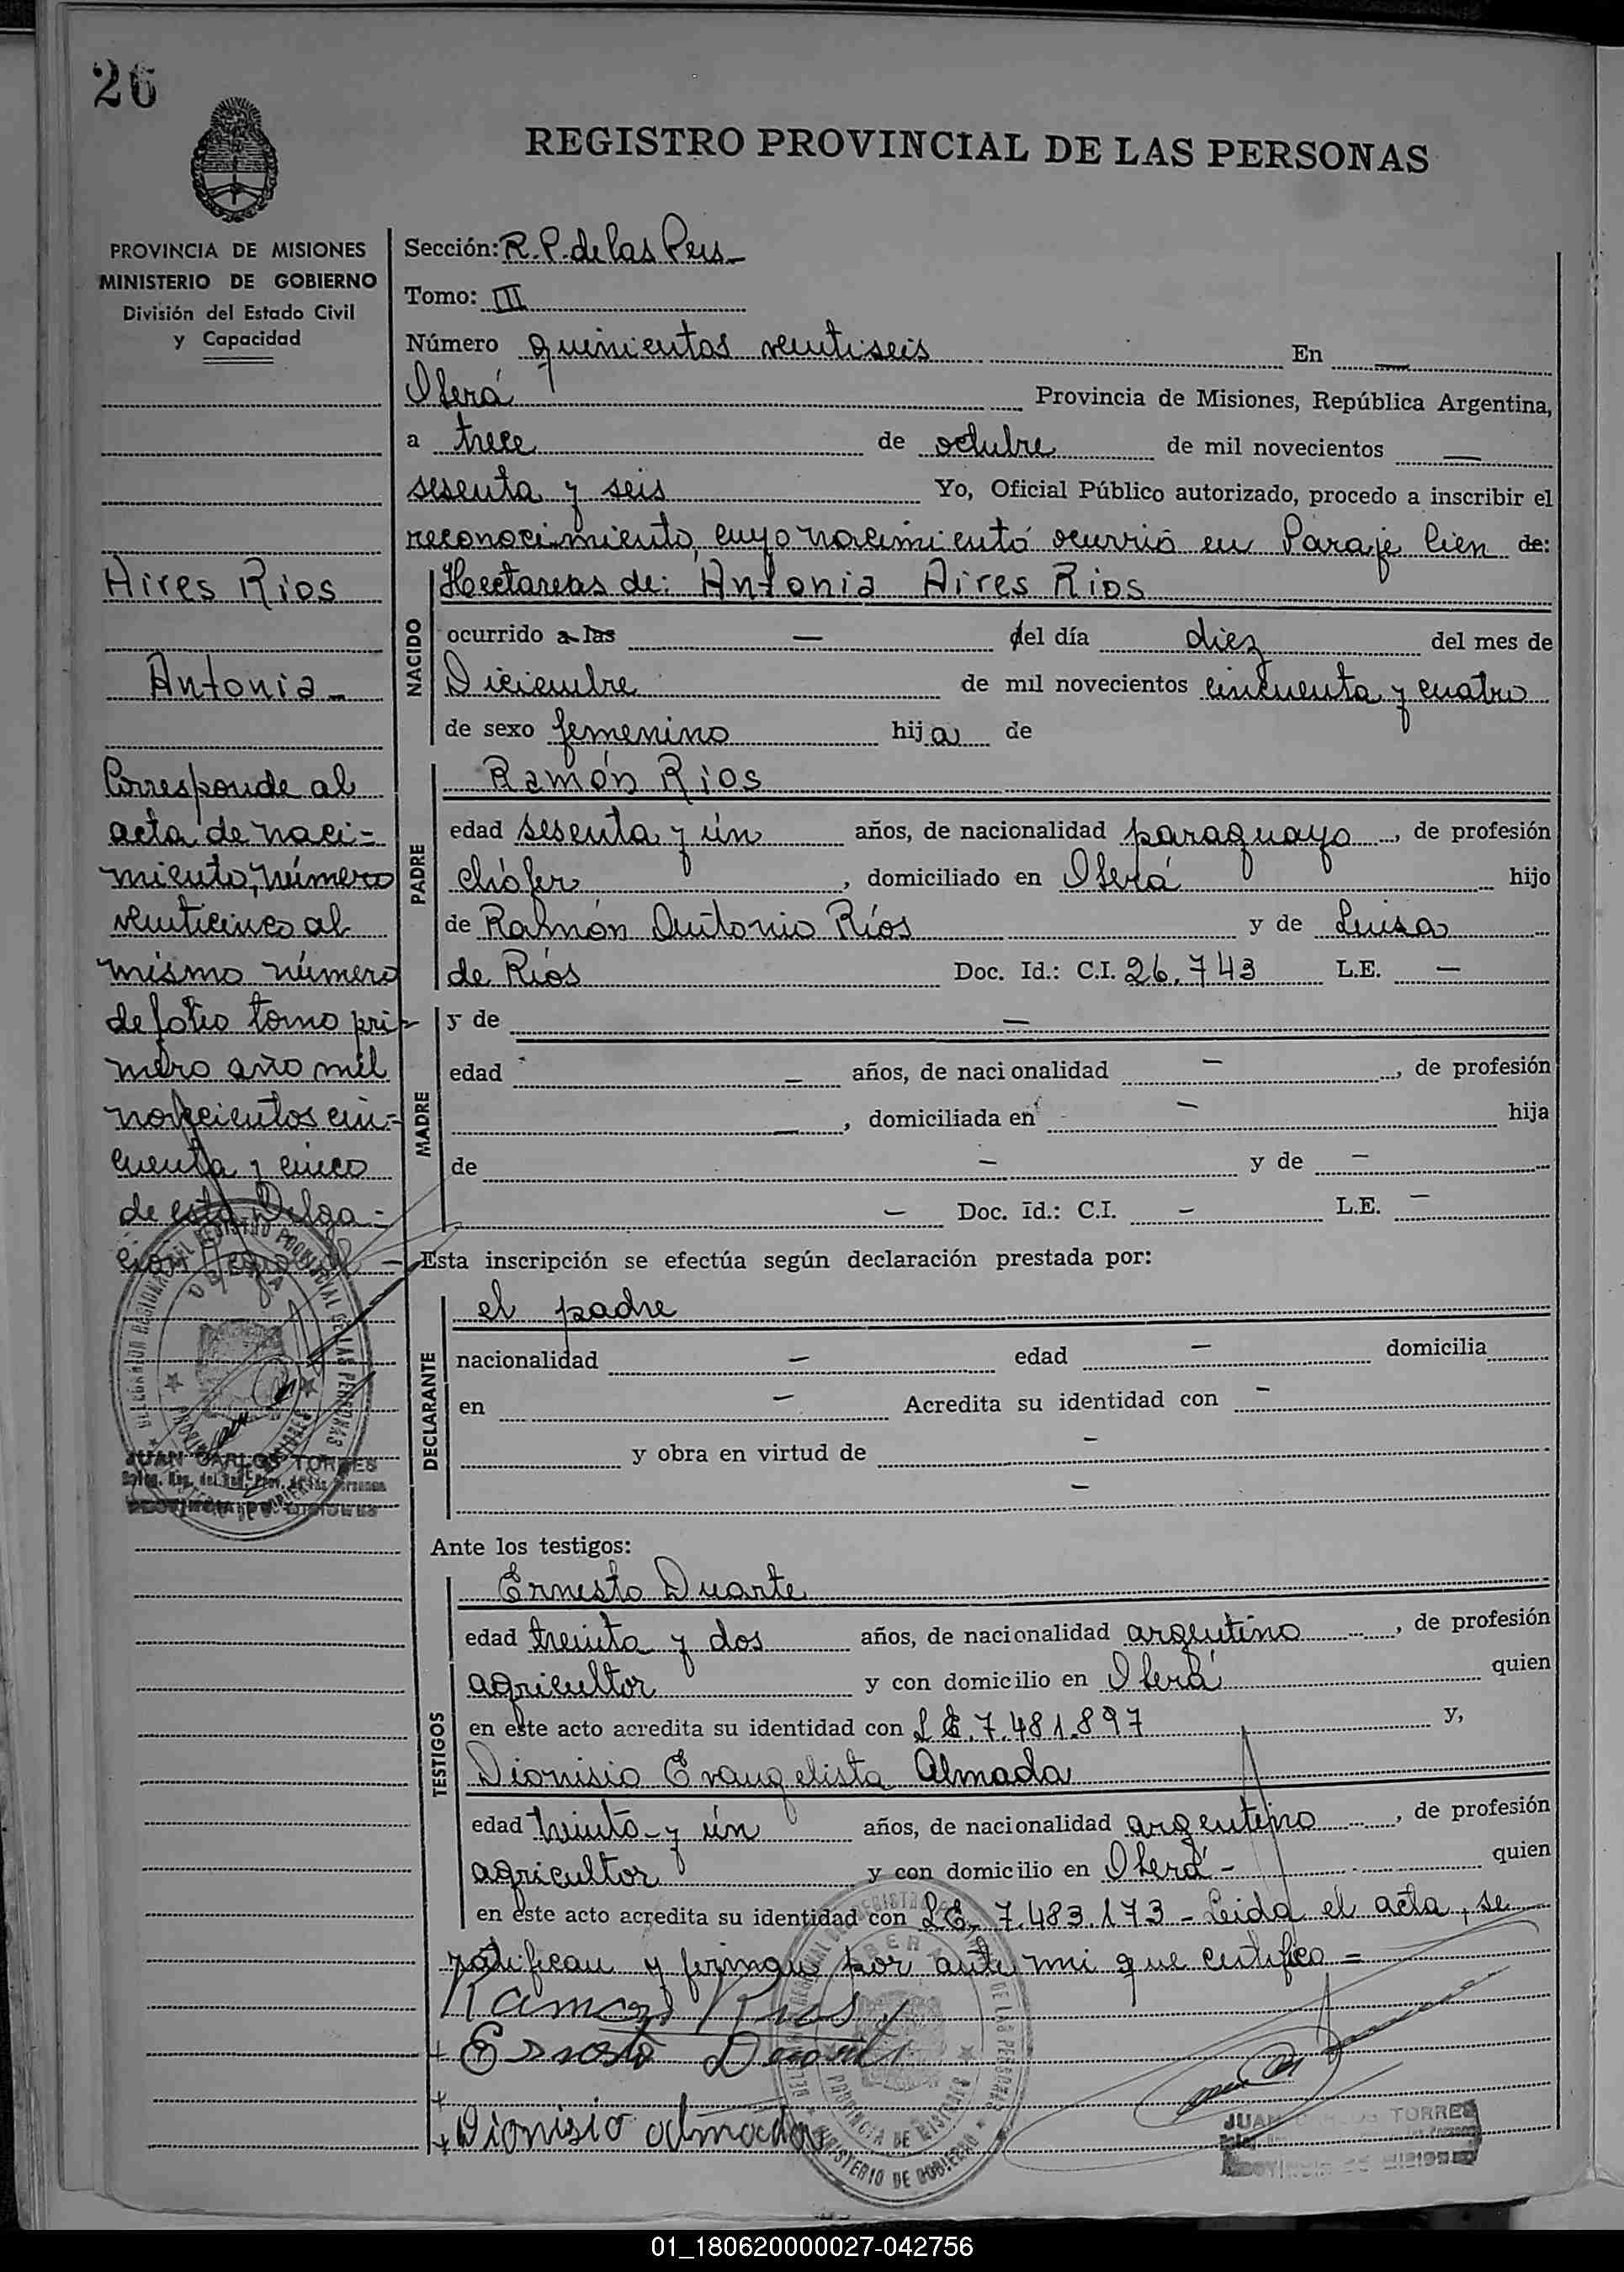 26
REGISTRO PROVINCIAL DE LAS PERSONAS
PROVINCIA DE MISIONES
MINISTERIO DE GOBIERNO
División del Estado Civil
y Capacidad
Sección: R.P. de las Pers.
Tomo: III
Número quinientos veintiseis En —
Oberá Provincia de Misiones, República Argentina,
a trece de octubre de mil novecientos —
sesenta y seis Yo, Oficial Público autorizado, procedo a inscribir el
reconocimiento, cuyo nacimiento ocurrió en Paraje Cien de:
Aires Rios
Antonia
Corresponde al
acta de naci=
miento, número
veinticinco al
mismo número
de folio tomo pri=
mero año mil
novecientos cin=
cuenta y cinco
de esta Delga=
ción
DELEGACION REGIONAL DEL REGISTRO PROVINCIAL DE LAS PERSONAS
OBERA
PROVINCIA DE MISIONES
JUAN CARLOS TORRES
Deleg. Reg. del Reg. Prov. de las Personas
PROVINCIA DE MISIONES
NACIDO
Hectareas de: Antonia Aires Rios
ocurrido a las — del día diez del mes de
Diciembre de mil novecientos cincuenta y cuatro
de sexo femenino hija de
PADRE
Ramón Rios
edad sesenta y ún años, de nacionalidad paraguayo, de profesión
chófer, domiciliado en Oberá hijo
de Ramón Antonio Ríos y de Luisa
de Ríos Doc. Id.: C.I. 26.743 L.E. —
MADRE
y de —
edad — años, de nacionalidad —, de profesión
—, domiciliada en — hija
de — y de —
— Doc. Id.: C.I. — L.E. —
Esta inscripción se efectúa según declaración prestada por:
DECLARANTE
el padre
nacionalidad — edad — domicilia
en — Acredita su identidad con —
y obra en virtud de —
—
Ante los testigos:
TESTIGOS
Ernesto Duarte
edad treinta y dos años, de nacionalidad argentino, de profesión
agricultor y con domicilio en Oberá quien
en este acto acredita su identidad con L.E. 7.481.897 y,
Dionisio Evangelista Almada
edad treinta y ún años, de nacionalidad argentino, de profesión
agricultor y con domicilio en Oberá - quien
en este acto acredita su identidad con L.E. 7.483.173 - Leida el acta, se
ratifican y firman por ante mi que certifico =
Ramon Rios
+ Ernesto Duarte
+
+ Dionisio almada
DELEGACION REGIONAL DEL REGISTRO PROVINCIAL DE LAS PERSONAS
OBERA
PROVINCIA DE MISIONES
MINISTERIO DE GOBIERNO
JUAN CARLOS TORRES
PROVINCIA DE MISIONES
01_180620000027-042756